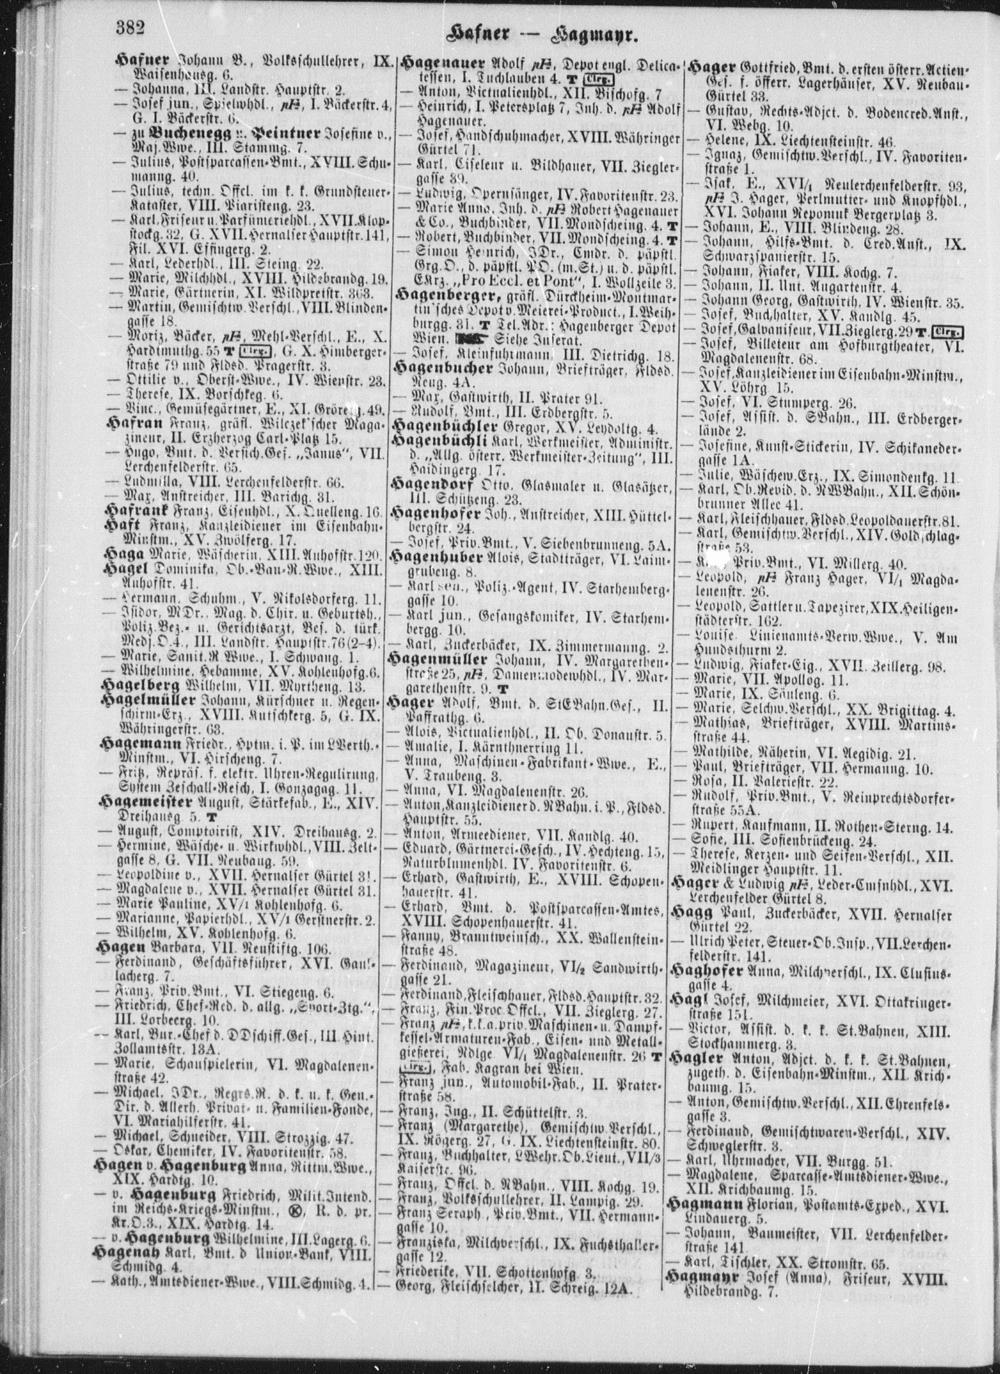 382
Hafner — Hagmayr.
Hafner Johann B., Volksschullehrer, IX.
Waisenhausg. 6.
— Johanna, III. Landstr. Hauptstr. 2.
— Josef jun., Spielwhdl., pH, I. Bäckerstr. 4,
G. I. Bäckerstr. 6.
— zu Buchenegg u. Peintner Josefine v.,
Maj.Wwe., III. Stammg. 7.
— Julius, Postsparcassen-Bmt., XVIII. Schu-
manng. 40.
— Julius, techn. Offcl. im k. k. Grundsteuer-
Kataster, VIII. Piaristeng. 23.
— Karl, Friseur u. Parfümeriehdl., XVII. Klop-
stockg. 32, G. XVII. Hernalser Hauptstr. 141,
Fil. XVI. Effingerg. 2.
— Karl, Lederhdl., III. Steing. 22.
— Marie, Milchhdl., XVIII. Hildebrandg. 19.
— Marie, Gärtnerin, XI. Wildpretstr. 363.
— Martin, Gemischtw. Verschl., VIII. Blinden-
gasse 18.
— Moriz, Bäcker, pH, Mehl-Verschl., E., X.
Hardtmuthg. 55 T Clrg., G. X. Himberger-
straße 79 und Fldsd. Pragerstr. 3.
— Ottilie v., Oberst-Wwe., IV. Wienstr. 23.
— Therese, IX. Borschkeg. 6.
— Vinc., Gemüsegärtner, E., XI. 49.
Hafran Franz, gräfl. Wilczek'scher Maga-
zineur, II. Erzherzog Carl-Platz 15.
— Hugo, Bmt. d. Versich.Ges. „Janus“, VII.
Lerchenfelderstr. 65.
— Ludmilla, VIII. Lerchenfelderstr. 66.
— Max, Anstreicher, III. Barichg. 31.
Hafrank Franz, Eisenhdl., X. Quelleng. 16.
Haft Franz, Kanzleidiener im Eisenbahn-
Minstm., XV. Zwölferg. 17.
Haga Marie, Wäscherin, XIII. Auhofstr. 120.
Hagel Dominika, Ob.-Bau-R.Wwe., XIII.
Auhofstr. 41.
— Hermann, Schuhm., V. Nikolsdorferg. 11.
— Isidor, MDr., Mag. d. Chir. u. Geburtsh.,
Poliz.Bez.- u. Gerichtsarzt, Bes. d. türk.
Medj.O.4., III. Landstr. Hauptstr. 76 (2–4).
— Marie, Sanit.R.Wwe., I. Schwang. 1.
— Wilhelmine, Hebamme, XV. Kohlenhofg. 6.
Hagelberg Wilhelm, VII. Myrtheng. 13.
Hagelmüller Johann, Kürschner u. Regen-
schirm-Erz., XVIII. Kutschkerg. 5, G. IX.
Währingerstr. 63.
Hagemann Friedr., Hptm. i. P. im LVerth.-
Minstm., VI. Hirscheng. 7.
— Fritz, Repräs. f. elektr. Uhren-Regulirung,
System Zeschall-Resch, I. Gonzagag. 11.
Hagemeister August, Stärkefab., E., XIV.
Dreihausg. 5. T
— August, Comptoirist, XIV. Dreihausg. 2.
— Hermine, Wäsche- u. Wirkwhdl., VIII. Zelt-
gasse 8, G. VII. Neubaug. 59.
— Leopoldine v., XVII. Hernalser Gürtel 31.
— Magdalene v., XVII. Hernalser Gürtel 31.
— Marie Pauline, XV/1 Kohlenhofg. 6.
— Marianne, Papierhdl., XV/1 Gerstnerstr. 2.
— Wilhelm, XV. Kohlenhofg. 6.
Hagen Barbara, VII. Neustiftg. 106.
— Ferdinand, Geschäftsführer, XVI. Gaul-
lacherg. 7.
— Franz, Priv.Bmt., VI. Stiegeng. 6.
— Friedrich, Chef-Red. d. allg. „Sport-Ztg.“,
III. Lorbeerg. 10.
— Karl, Bur.-Chef d. DDschiff.Ges., III. Hint.
Zollamtsstr. 13A.
— Marie, Schauspielerin, VI. Magdalenen-
straße 42.
— Michael, JDr., Regrs.R. d. k. u. k. Gen.-
Dir. d. Allerh. Privat- u. Familien-Fonde,
VI. Mariahilferstr. 41.
— Michael, Schneider, VIII. Strozzig. 47.
— Oskar, Chemiker, IV. Favoritenstr. 58.
Hagen v. Hagenburg Anna, Rittm.Wwe.,
XIX. Hardtg. 10.
— v. Hagenburg Friedrich, Milit.Intend.
im Reichs-Kriegs-Minstm., R. d. pr.
Kr.O.3., XIX. Hardtg. 14.
— v. Hagenburg Wilhelmine, III. Lagerg. 6.
Hagenah Karl, Bmt. d. Union-Bank, VIII.
Schmidg. 4.
— Kath., Amtsdiener-Wwe., VIII. Schmidg. 4.
Hagenauer Adolf pH, Depot engl. Delica-
tessen, I. Tuchlauben 4. T Clrg.
— Anton, Victualienhdl., XII. Bischofg. 7
— Heinrich, I. Petersplatz 7, Inh. d. pH Adolf
Hagenauer.
— Josef, Handschuhmacher, XVIII. Währinger
Gürtel 71.
— Karl, Ciseleur u. Bildhauer, VII. Ziegler-
gasse 39.
— Ludwig, Opernsänger, IV. Favoritenstr. 23.
— Marie Anna, Inh. d. pH Robert Hagenauer
& Co., Buchbinder, VII. Mondscheing. 4. T
— Robert, Buchbinder, VII. Mondscheing. 4. T
— Simon Heinrich, JDr., Cmdr. d. päpstl.
Grg.O., d. päpstl. PO. (m.St.) u. d. päpstl.
EKrz. „Pro Eccl. et Pont“, I. Wollzeile 3.
Hagenberger, gräfl. Dürckheim-Montmar-
tin'sches Depot v. Meierei-Product., I. Weih-
burgg. 31. T Tel.Adr.: Hagenberger Depot
Wien. Siehe Inserat.
— Josef, Kleinfuhrmann, III. Dietrichg. 18.
Hagenbucher Johann, Briefträger, Fldsd.
Neug. 4A.
— Max, Gastwirth, II. Prater 91.
— Rudolf, Bmt., III. Erdbergstr. 5.
Hagenbüchler Gregor, XV. Leydoltg. 4.
Hagenbüchli Karl, Werkmeister, Administr.
d. „Allg. österr. Werkmeister-Zeitung“, III.
Haidingerg. 17.
Hagendorf Otto, Glasmaler u. Glasätzer,
III. Schützeng. 23.
Hagenhofer Joh., Anstreicher, XIII. Hüttel-
bergstr. 24.
— Josef, Priv.Bmt., V. Siebenbrunneng. 5A.
Hagenhuber Alois, Stadtträger, VI. Laim-
grubeng. 8.
— Karl sen., Poliz.-Agent, IV. Starhemberg-
gasse 10.
— Karl jun., Gesangskomiker, IV. Starhem-
bergg. 10.
— Karl, Zuckerbäcker, IX. Zimmermanng. 2.
Hagenmüller Johann, IV. Margarethen-
straße 25, pH, Damenmodewhdl., IV. Mar-
garethenstr. 9. T
Hager Adolf, Bmt. d. StEBahn.Ges., II.
Paffrathg. 6.
— Alois, Victualienhdl., II. Ob. Donaustr. 5.
— Amalie, I. Kärnthnerring 11.
— Anna, Maschinen-Fabrikant-Wwe., E.,
V. Traubeng. 3.
— Anna, VI. Magdalenenstr. 26.
— Anton, Kanzleidiener d. RBahn. i. P., Fldsd.
Hauptstr. 55.
— Anton, Armeediener, VII. Kandlg. 40.
— Eduard, Gärtnerei-Gesch., IV. Hechteng. 15,
Naturblumenhdl. IV. Favoritenstr. 6.
— Erhard, Gastwirth, E., XVIII. Schopen-
hauerstr. 41.
— Erhard, Bmt. d. Postsparcassen-Amtes,
XVIII. Schopenhauerstr. 41.
— Fanny, Branntweinsch., XX. Wallenstein-
straße 48.
— Ferdinand, Magazineur, VI/2 Sandwirth-
gasse 21.
— Ferdinand, Fleischhauer, Fldsd. Hauptstr. 32.
— Franz, Fin.Proc.Offcl., VII. Zieglerg. 27.
— Franz pH, k.k.a.priv. Maschinen- u. Dampf-
kessel-Armaturen-Fab., Eisen- und Metall-
gießerei, Ndlge VI/1 Magdalenenstr. 26 T
Clrg., Fab. Kagran bei Wien.
— Franz jun., Automobil-Fab., II. Prater-
straße 58.
— Franz, Ing., II. Schüttelstr. 3.
— Franz (Margarethe), Gemischtw.Verschl.,
IX. Rögerg. 27, G. IX. Liechtensteinstr. 80.
— Franz, Buchhalter, LWehr.Ob.Lieut., VII/3
Kaiserstr. 96.
— Franz, Offcl. d. RBahn., VIII. Kochg. 19.
— Franz, Volksschullehrer, II. Lampig. 29.
— Franz Seraph., Priv.Bmt., VII. Hermann-
gasse 10.
— Franziska, Milchverschl., IX. Fuchsthaler-
gasse 12.
— Friederike, VII. Schottenhofg. 3.
— Georg, Fleischselcher, II. Schreig. 12A.
Hager Gottfried, Bmt. d. ersten österr. Actien-
Ges. f. öffentl. Lagerhäuser, XV. Neubau-
Gürtel 33.
— Gustav, Rechts-Adjct. d. Bodencred.Anst.,
VI. Webg. 10.
— Helene, IX. Liechtensteinstr. 46.
— Ignaz, Gemischtw.Verschl., IV. Favoriten-
straße 1.
— Isak, E., XVI/1 Neulerchenfelderstr. 93,
pH J. Hager, Perlmutter- und Knopfhdl.,
XVI. Johann Nepomuk Bergerplatz 3.
— Johann, E., VIII. Blindeng. 28.
— Johann, Hilfs-Bmt. d. Cred.Anst., IX.
Schwarzspanierstr. 15.
— Johann, Fiaker, VIII. Kochg. 7.
— Johann, II. Unt. Augartenstr. 4.
— Johann Georg, Gastwirth, IV. Wienstr. 35.
— Josef, Buchhalter, XV. Kandlg. 45.
— Josef, Galvaniseur, VII. Zieglerg. 29 T. Clrg.
— Josef, Billeteur am Hofburgtheater, VI.
Magdalenenstr. 68.
— Josef, Kanzleidiener im Eisenbahn-Minstm.,
XV. Löhrg. 15.
— Josef, VI. Stumperg. 26.
— Josef, Assist. d. SBahn., III. Erdberger-
lände 2.
— Josefine, Kunst-Stickerin, IV. Schikaneder-
gasse 1A.
— Julie, Wäschew.Erz., IX. Simondenkg. 11.
— Karl, Ob.Revid. d. NWBahn., XII. Schön-
brunner Allee 41.
— Karl, Fleischhauer, Fldsd. Leopoldauerstr. 81.
— Karl, Gemischtw.Verschl., XIV. Goldschlag-
straße 53.
— Priv.Bmt., VI. Millerg. 40.
— Leopold, pH Franz Hager, VI/1 Magda-
lenenstr. 26.
— Leopold, Sattler u. Tapezirer, XIX. Heiligen-
städterstr. 162.
— Louise, Linienamts-Verw.Wwe., V. Am
Hundsthurm 2.
— Ludwig, Fiaker-Eig., XVII. Zeillerg. 98.
— Marie, VII. Apollog. 11.
— Marie, IX. Säuleng. 6.
— Marie, Selchw.Verschl., XX. Brigittag. 4.
— Mathias, Briefträger, XVIII. Martins-
straße 44.
— Mathilde, Näherin, VI. Aegidig. 21.
— Paul, Briefträger, VII. Hermanng. 10.
— Rosa, II. Valeriestr. 22.
— Rudolf, Priv.Bmt., V. Reinprechtsdorfer-
straße 55A.
— Rupert, Kaufmann, II. Rothen-Sterng. 14.
— Sofie, III. Sofienbrückeng. 24.
— Therese, Kerzen- und Seifen-Verschl., XII.
Meidlinger Hauptstr. 11.
Hager & Ludwig pH, Leder-Cmsnhdl., XVI.
Lerchenfelder Gürtel 8.
Hagg Paul, Zuckerbäcker, XVII. Hernalser
Gürtel 22.
— Ulrich Peter, Steuer-Ob.Insp., VII. Lerchen-
felderstr. 141.
Haghofer Anna, Milchverschl., IX. Clusius-
gasse 4.
Hagl Josef, Milchmeier, XVI. Ottakringer-
straße 151.
— Victor, Assist. d. k. k. St.Bahnen, XIII.
Stockhammerg. 3.
Hagler Anton, Adjct. d. k. k. St.Bahnen,
zugeth. d. Eisenbahn-Minstm., XII. Krich-
baumg. 15.
— Anton, Gemischtw.Verschl., XII. Ehrenfels-
gasse 3.
— Ferdinand, Gemischtwaren-Verschl., XIV.
Schweglerstr. 3.
— Karl, Uhrmacher, VII. Burgg. 51.
— Magdalene, Sparcasse-Amtsdiener-Wwe.,
XII. Krichbaumg. 15.
Hagmann Florian, Postamts-Exped., XVI.
Lindauerg. 5.
— Johann, Baumeister, VII. Lerchenfelder-
straße 141
— Karl, Tischler, XX. Stromstr. 65.
Hagmayr Josef (Anna), Friseur, XVIII.
Hildebrandg. 7.